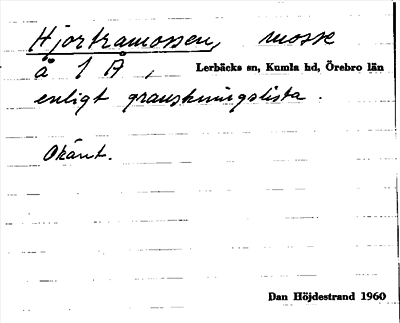 Hjortramossen, mosse
å 1 A, Lerbäcks sn, Kumla hd, Örebro län
enligt granskningslista.
Okänt.
Dan Höjdestrand 1960